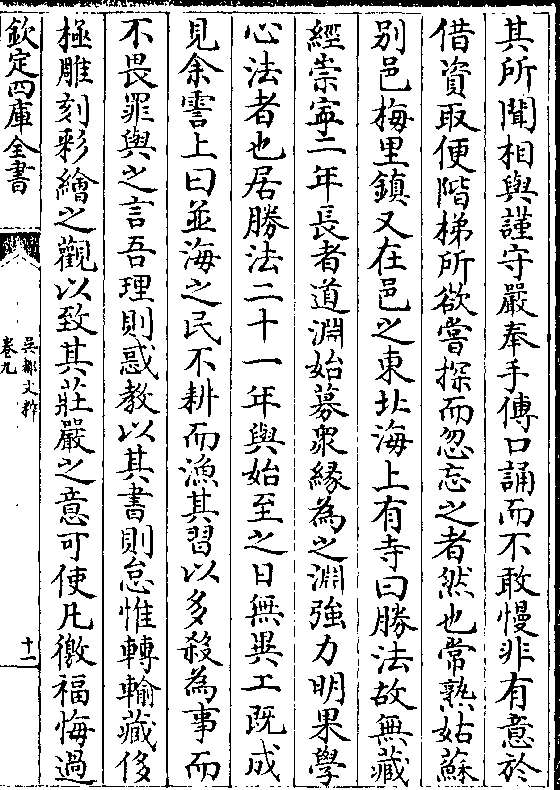 其所聞相與謹守嚴奉手傳口誦而不敢慢非有意於
借資取便階梯所欲嘗探而忽忘之者然也常熟姑蘇
别邑梅里鎮又在邑之東北海上有寺曰勝法故無藏
經崇寧二年長者道淵始募衆緣為之淵強力明果學
心法者也居勝法二十一年與始至之日無異工既成
見余霅上曰並海之民不耕而漁其習以多殺為事而
不畏罪與之言吾理則惑教以其書則怠惟轉輸藏侈
極雕刻彩繪之觀以致其莊嚴之意可使凡徼福悔過
欽定四庫全書
吳都文粹
卷九
十二